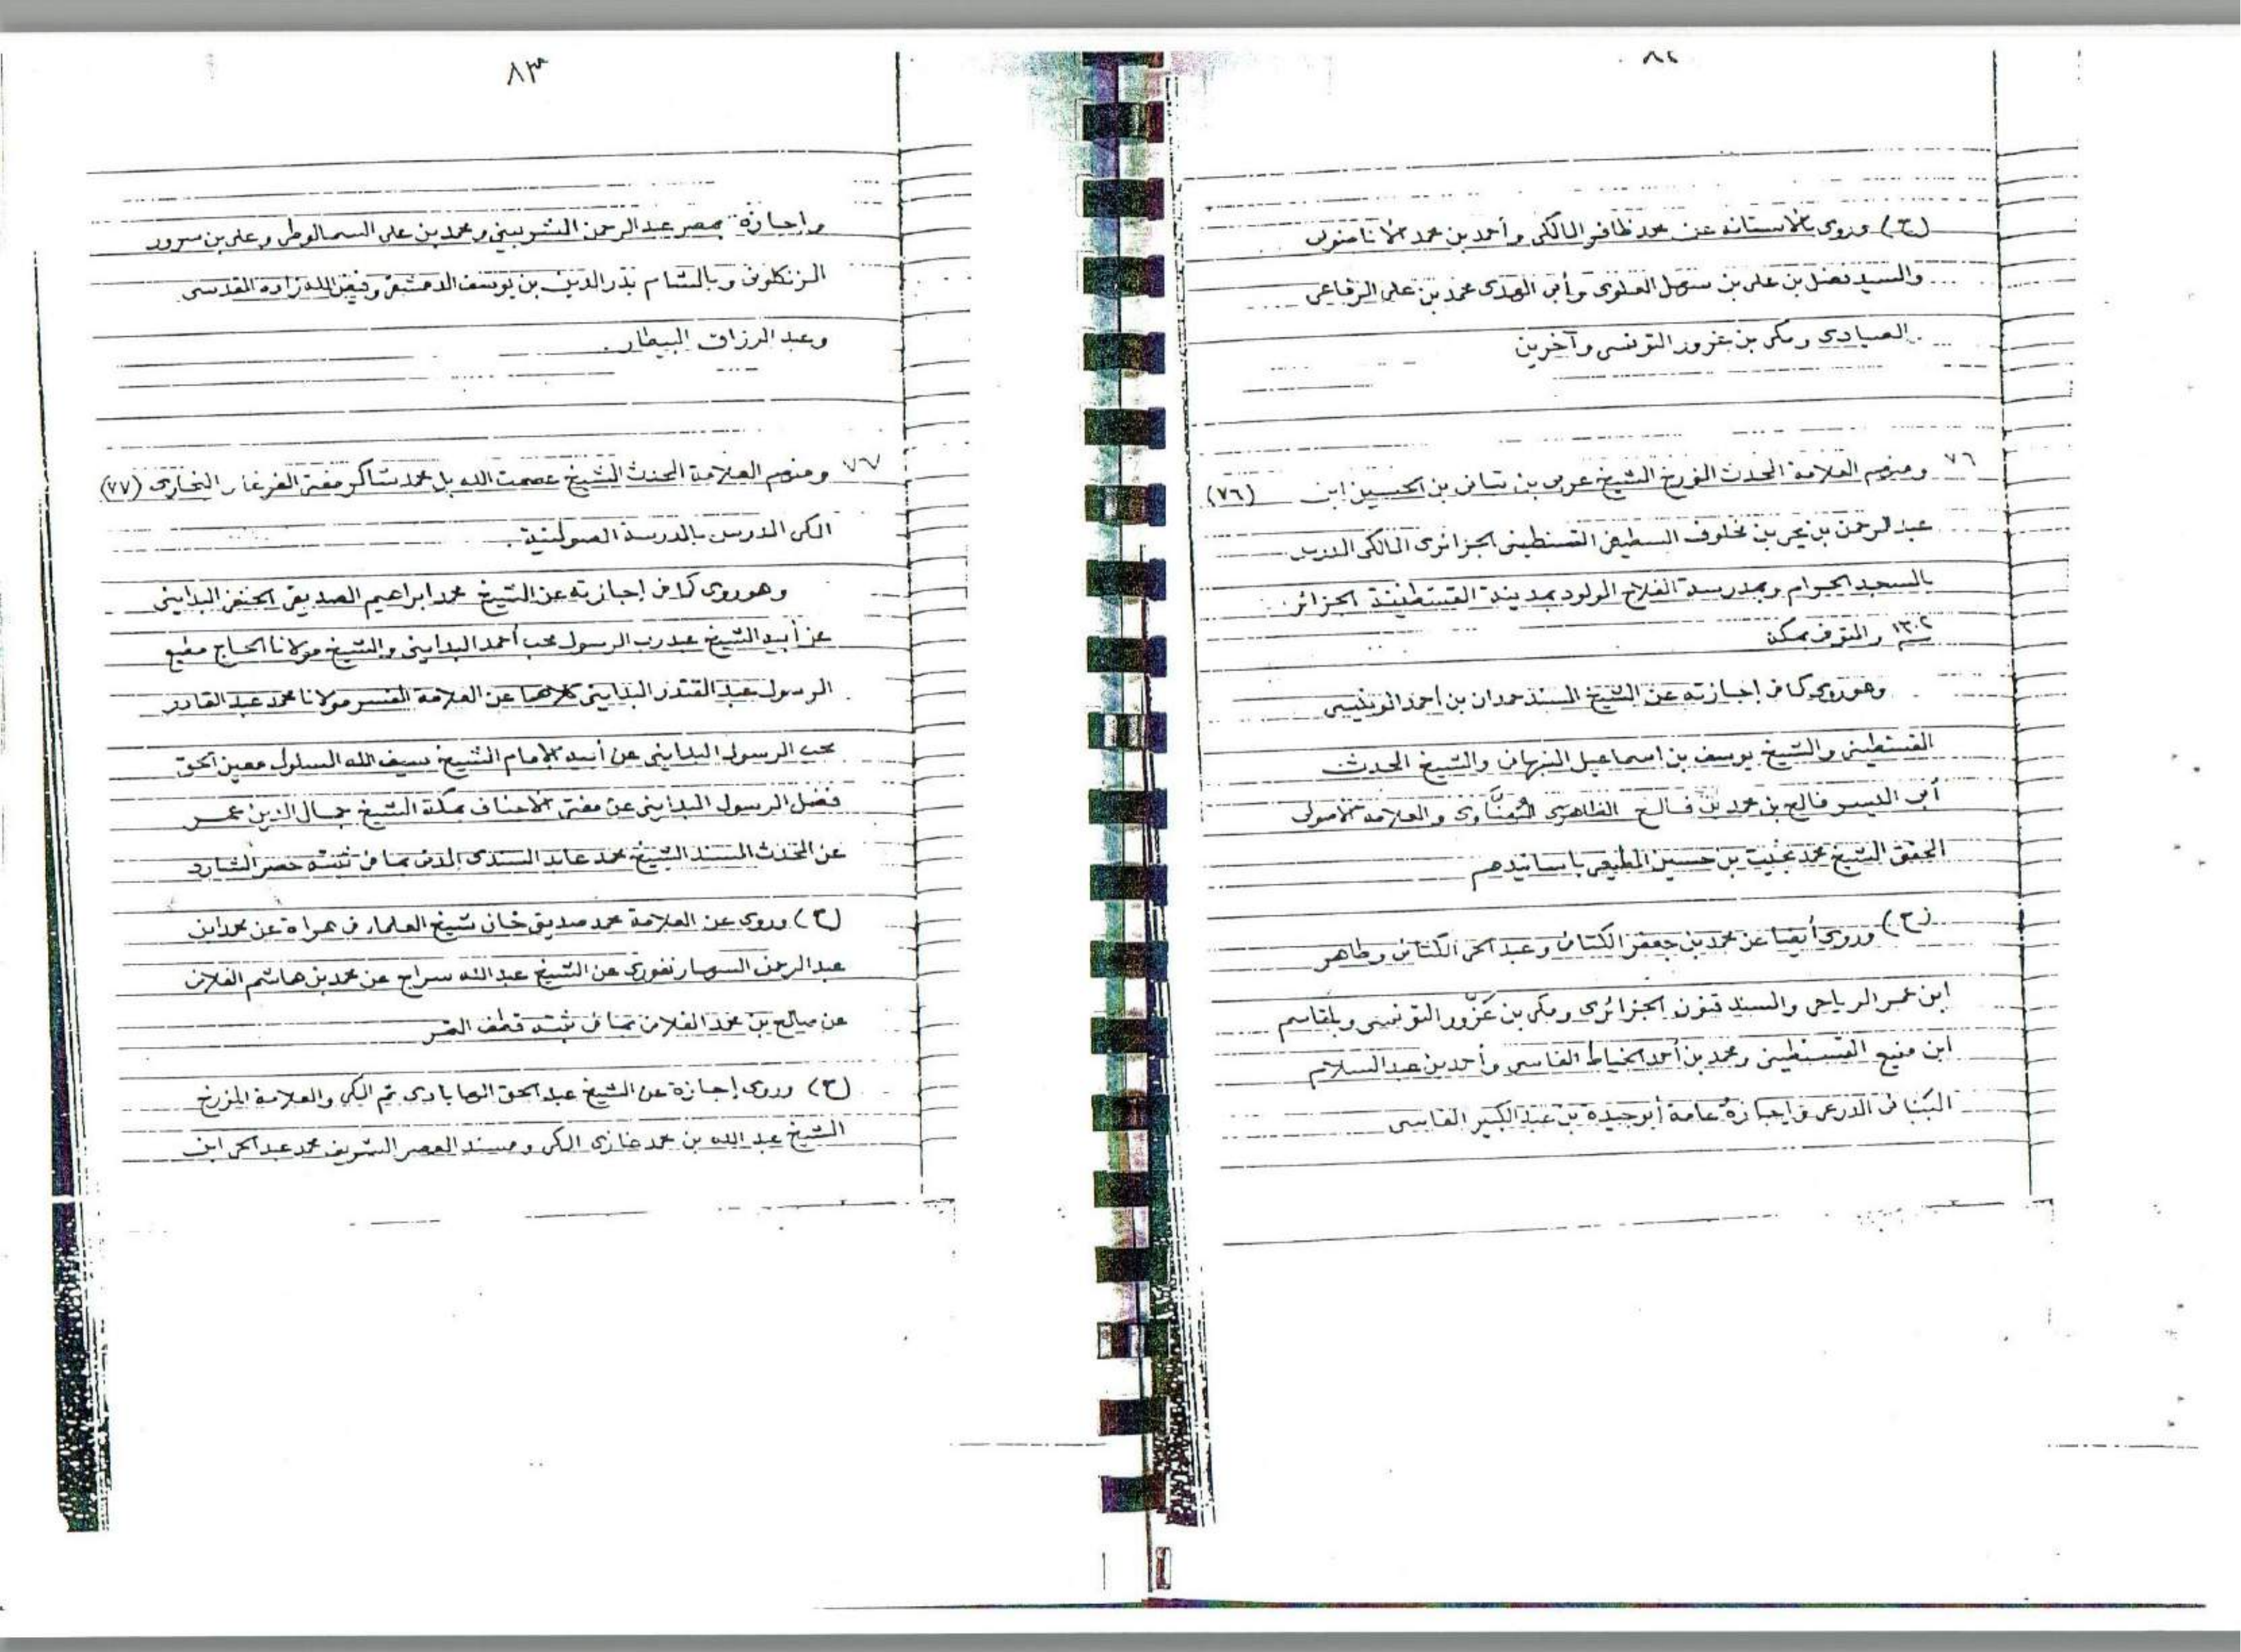 ٨٢
(ح) وروى بالاستانه عن محمد ظافر المالكى وأحمد بن محمد الاناضولى
والسيد فضل بن على بن سهل العلوى وأبى الهدى محمد بن على الرفاعى
الصيادى ومكى بن عزوز التونسى وآخرين
٧٦ ومنهم العلامة المحدث المؤرخ الشيخ عربى بن تبانى بن الحسين ابن (٧٦)
عبد الرحمن بن يحيى بن مخلوف السطيفى القسنطينى الجزائرى المالكى المدرس
بالمسجد الحرام وبمدرسة الفلاح المولود بمدينة القسنطينة الجزائر
١٣٠٢ والمتوفى بمكة
وهو روى كما فى إجازته عن الشيخ المسند حمدان بن أحمد الونيسى
القسنطينى والشيخ يوسف بن اسماعيل النبهانى والشيخ المحدث
أبى اليسر فالح بن محمد بن فالح الظاهرى المُهنَّاوى والعلامة الاصولى
المحقق الشيخ محمد بخيت بن حسين المطيعى باسانيدهم
(ح) وروى أيضا عن محمد بن جعفر الكتانى وعبد الحى الكتانى وطاهر
ابن عمر الرياحى والسند قنون الجزائرى ومكى بن عَزّوز التونسى وبلقاسم
ابن منيع القسنطينى ومحمد بن أحمد الخياط الفاسى وأحمد بن عبد السلام
البنانى الدرعى وإجازة عامة أبو جيدة بن عبد الكبير الفاسى
٨٣
وإجازة بمصر عبد الرحمن الشربينى ومحمد بن على السمالوطى وعلى بن سرور
الزنكلونى وبالشام بدر الدين بن يوسف الدمشقى وفيض الله زاده القدسى
وعبد الرزاق البيطار.
٧٧ ومنهم العلامة المحدث الشيخ عصمت الله بل محمد شاكر مفتى الفرغانى البخارى (٧٧)
المكى المدرس بالمدرسة الصولتية.
وهو روى كما فى إجازته عن الشيخ محمد ابراهيم الصديقى الحنفى البدايينى
عن أبيه الشيخ عبد رب الرسول محب أحمد البدايينى والشيخ مولانا الحاج مطيع
الرسول عبد المقتدر البدايينى كلاهما عن العلامة المفسر مولانا محمد عبد القادر
محب الرسول البدايينى عن أبيه الإمام الشيخ سيف الله المسلول معين الحق
فضل الرسول البدايينى عن مفتى الاحناف بمكة الشيخ جمال الدين عمر
عن المحدث المسند الشيخ محمد عابد السندى المدنى بما فى ثبته حصر الشارد
(ح) وروى عن العلامة محمد صديق خان شيخ العلماء فى هراة عن محمد ابن
عبد الرحمن السهارنفورى عن الشيخ عبد الله سراج عن محمد بن هاشم الفلانى
عن صالح بن محمد الفلانى بما فى ثبته قطف الثمر
(ح) وروى إجازة عن الشيخ عبد الحق الهابادى ثم المكى والعلامة المؤرخ
الشيخ عبد الله بن محمد غازى المكى ومسند العصر الشريف محمد عبد الحى ابن